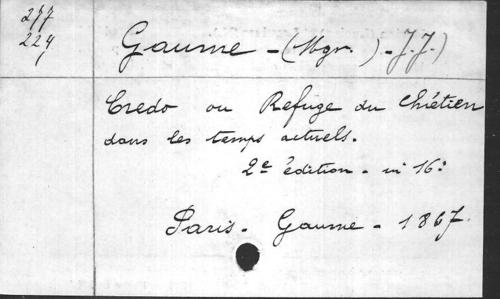 277
224
Gaume - (Mgr. ) - J. J.)
Credo ou Refuge du Chrétien
dans les temps actuels.
2e édition - in 16:
Paris - Gaume - 1867.